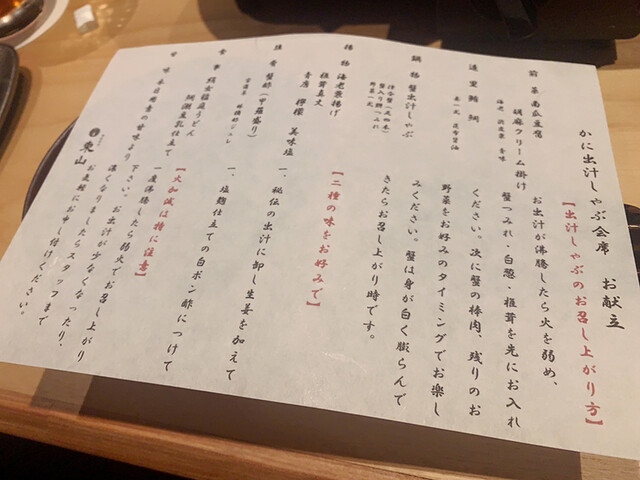 かに出汁しゃぶ会席　お献立
【出汁しゃぶのお召し上がり方】
前菜 南瓜豆腐
胡麻クリーム掛け
お出汁が沸騰したら火を弱め、
蟹つみれ・白葱・椎茸を先にお入れ
ください。次に蟹の棒肉、残りのお
野菜をお好みのタイミングでお楽し
みください。蟹は身が白く膨らんで
きたらお召し上がり時です。
鍋物 蟹出汁しゃぶ
野菜一式
揚物 海老葱揚げ
椎茸真丈
青唐　檸檬　美味塩
【二種の味をお好みで】
一、秘伝の出汁に卸し生姜を加えて
一、塩麹仕立ての白ポン酢につけて
蟹酢（甲羅盛り）
食事 絹女稲庭うどん
胡瀬豆乳仕立て
【火加減は特に注意】
一度沸騰したら弱火でお召し上がり
下さい。お出汁が少なくなったり、
濃くなりましたらスタッフまで
お気軽にお申し付けください。
甘味 本日用意の甘味より
東山